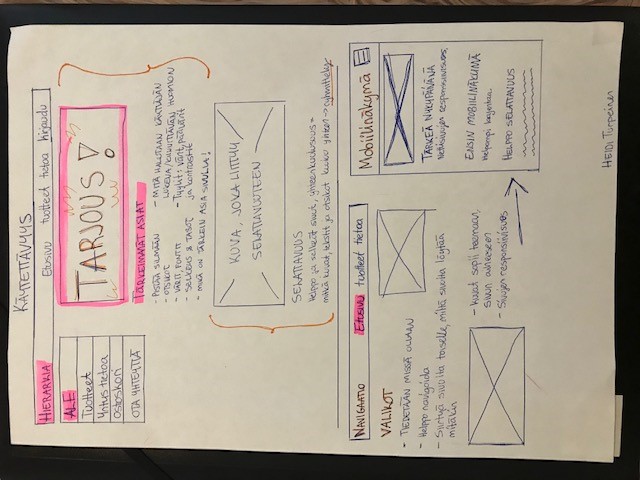 KÄYTETTÄVYYS
HIERARKIA Etusivu tuotteet tietoa kirjaudu
ALE
Tuotteet
Yritystietoa
Ostoskori
OTA YHTEYTTÄ
TARJOUS!
TÄRKEIMMÄT ASIAT
- PISTÄÄ SILMÄÄN
- OTSIKOT
- VÄRIT, FONTIT
- SELKEYS & TASOT
- MIKÄ ON TÄRKEIN ASIA SIVULLA!
- MITÄ HALUTAAN KÄYTTÄJÄN
LUKEVA/KIINNITTÄVÄN HUOMION
- Tyylit: Värit, päävärit
ja kontrastit
KUVA, JOKA LIITTYY
SELATTAVUUTEEN
SELATTAVUUS
Helppo ja selkeät sivut, yhteenkuuluvuus =
mitkä kuvat, tekstit ja otsikot kuuluu yhteen → ryhmittely
NAVIGAATIO Etusivu tuotteet tietoa
VALIKOT
- TIEDETÄÄN MISSÄ OLLAAN
- Helppo navigoida
- Siirtyä sivulta toiselle, miltä sivulta löytää
mitäkin
- Kuvat sopii teemaan,
sivun aiheeseen
- Sivujen responsiivisuus
Mobiilinäkymä
TÄRKEÄ NYKYPÄIVÄNÄ
Nettisivujen responsiivisuus,
ENSIN MOBIILINÄKUMÄ
Helpompi laajentaa
HELPPO SELATTAVUUS
HEIDI Turpeinen